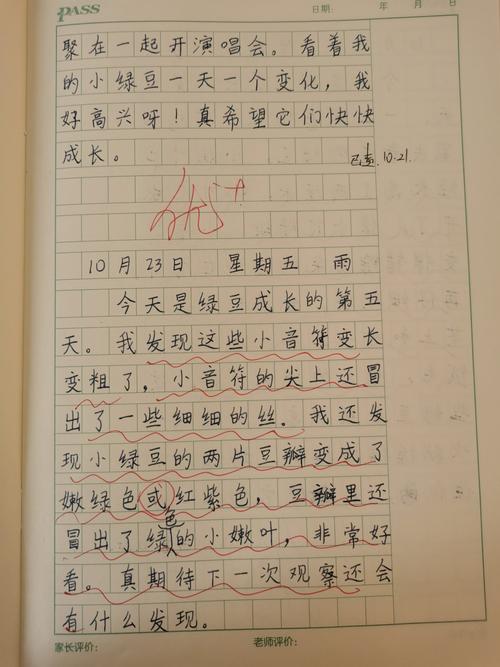 PASS
日期： 年 月 日
聚在一起开演唱会。看着我
的小绿豆一天一个变化，我
好高兴呀！真希望它们快快
成长。
已查.10.21.
优+
10月23日 星期五 雨
今天是绿豆成长的第五
天。我发现这些小音符变长
变粗了，小音符的尖上还冒
出了一些细细的丝。我还发
现小绿豆的两片豆瓣变成了
嫩绿色或红紫色，豆瓣里还
色
冒出了绿的小嫩叶，非常好
看。真期待下一次观察还会
有什么发现。
家长评价： 老师评价：